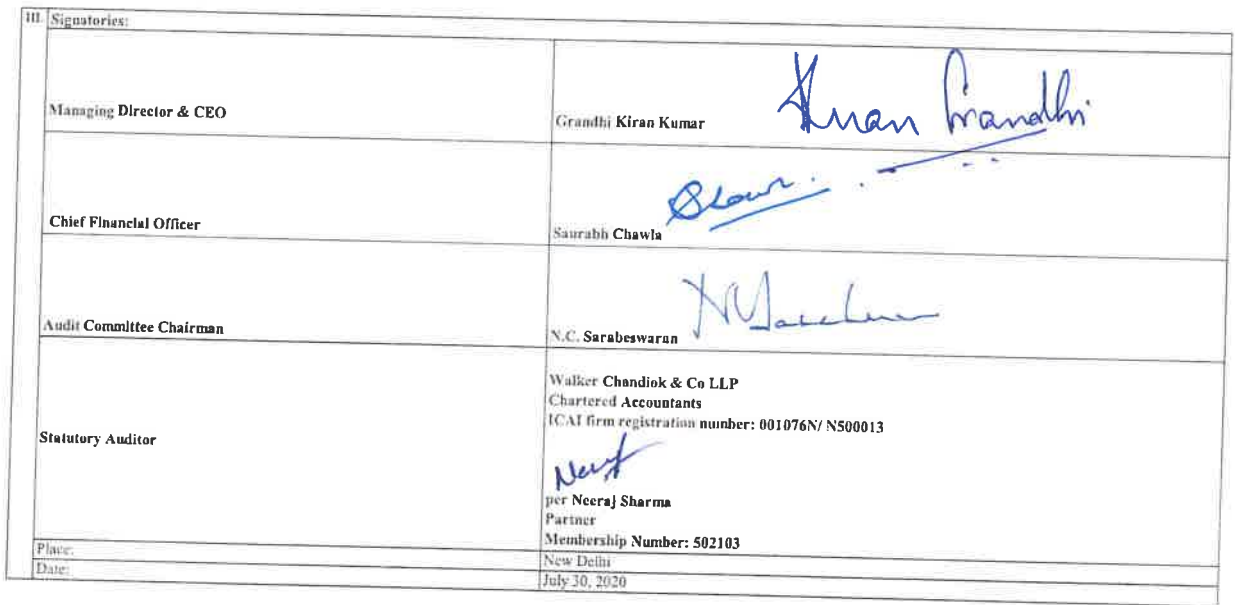 III. Signatories:
Managing Director & CEO
Grandhi Kiran Kumar
Kiran Grandhi
Chief Financial Officer
Saurabh Chawla
Audit Committee Chairman
N.C. Sarabeswaran
Statutory Auditor
Walker Chandiok & Co LLP
Chartered Accountants
ICAI firm registration number: 001076N/ N500013
per Neeraj Sharma
Partner
Membership Number: 502103
Place:
New Delhi
Date:
July 30, 2020